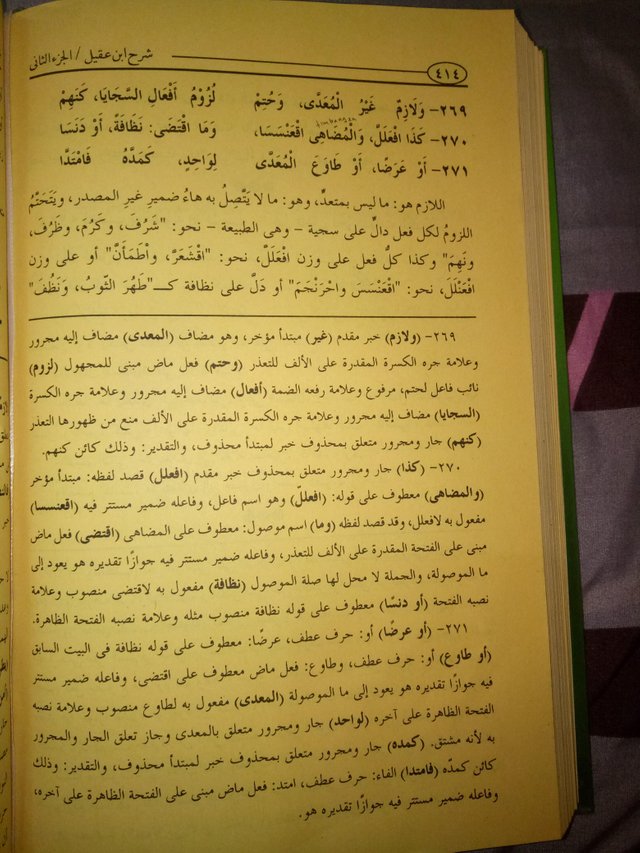 شرح ابن عقيل / الجزء الثانى
٤١٤
٢٦٩- وَلَازِمٌ غَيْرُ الْمُعَدَّى، وَحُتِمْ لُزُومُ أَفْعَالِ السَّجَايَا، كَنَهِمْ
٢٧٠- كَذَا افْعَلَلَّ، وَالْمُضَاهِى اقْعَنْسَسَا، وَمَا اقْتَضَى: نَظَافَةً، أَوْ دَنَسَا
٢٧١- أَوْ عَرَضًا، أَوْ طَاوَعَ الْمُعَدَّى لِوَاحِدٍ، كَمَدَّهُ فَامْتَدَّا
اللازم هو: ما ليس بمتعدٍّ، وهو: ما لا يَتَّصِلُ به هاءُ ضميرِ غيرِ المصدر، ويَتَحَتَّمُ
اللزومُ لكل فعل دالٍّ على سجية - وهى الطبيعة - نحو: "شَرُفَ، وكَرُمَ، وظَرُفَ،
ونَهِمَ" وكذا كلُّ فعل على وزن افْعَلَلَّ، نحو: "اقْشَعَرَّ، واْطَمَأَنَّ" أو على وزن
افْعَنْلَلَ، نحو: "اقْعَنْسَسَ واحْرَنْجَمَ" أو دَلَّ على نظافة كـ"طَهُرَ الثّوبُ، وَنَظُفَ"
٢٦٩- (ولازم) خبر مقدم (غير) مبتدأ مؤخر، وهو مضاف (المعدى) مضاف إليه مجرور
وعلامة جره الكسرة المقدرة على الألف للتعذر (وحتم) فعل ماض مبنى للمجهول (لزوم)
نائب فاعل لحتم، مرفوع وعلامة رفعه الضمة (أفعال) مضاف إليه مجرور وعلامة جره الكسرة
(السجايا) مضاف إليه مجرور وعلامة جره الكسرة المقدرة على الألف منع من ظهورها التعذر
(كنهم) جار ومجرور متعلق بمحذوف خبر لمبتدأ محذوف، والتقدير: وذلك كائن كنهم.
٢٧٠- (كذا) جار ومجرور متعلق بمحذوف خبر مقدم (افعلل) قصد لفظه: مبتدأ مؤخر
(والمضاهى) معطوف على قوله: (افعلل) وهو اسم فاعل، وفاعله ضمير مستتر فيه (اقعنسسا)
مفعول به لافعلل، وقد قصد لفظه (وما) اسم موصول: معطوف على المضاهى (اقتضى) فعل ماض
مبنى على الفتحة المقدرة على الألف للتعذر، وفاعله ضمير مستتر فيه جوازًا تقديره هو يعود إلى
ما الموصولة، والجملة لا محل لها صلة الموصول (نظافة) مفعول به لاقتضى منصوب وعلامة
نصبه الفتحة (أو دنسًا) معطوف على قوله نظافة منصوب مثله وعلامة نصبه الفتحة الظاهرة.
٢٧١- (أو عرضًا) أو: حرف عطف، عرضًا: معطوف على قوله نظافة فى البيت السابق
(أو طاوع) أو: حرف عطف، وطاوع: فعل ماض معطوف على اقتضى، وفاعله ضمير مستتر
فيه جوازًا تقديره هو يعود إلى ما الموصولة (المعدى) مفعول به لطاوع منصوب وعلامة نصبه
الفتحة الظاهرة على آخره (لواحد) جار ومجرور متعلق بالمعدى وجاز تعلق الجار والمجرور
به لأنه مشتق. (كمده) جار ومجرور متعلق بمحذوف خبر لمبتدأ محذوف، والتقدير: وذلك
كائن كمدّه (فامتدا) الفاء: حرف عطف، امتد: فعل ماض مبنى على الفتحة الظاهرة على آخره،
وفاعله ضمير مستتر فيه جوازًا تقديره هو.